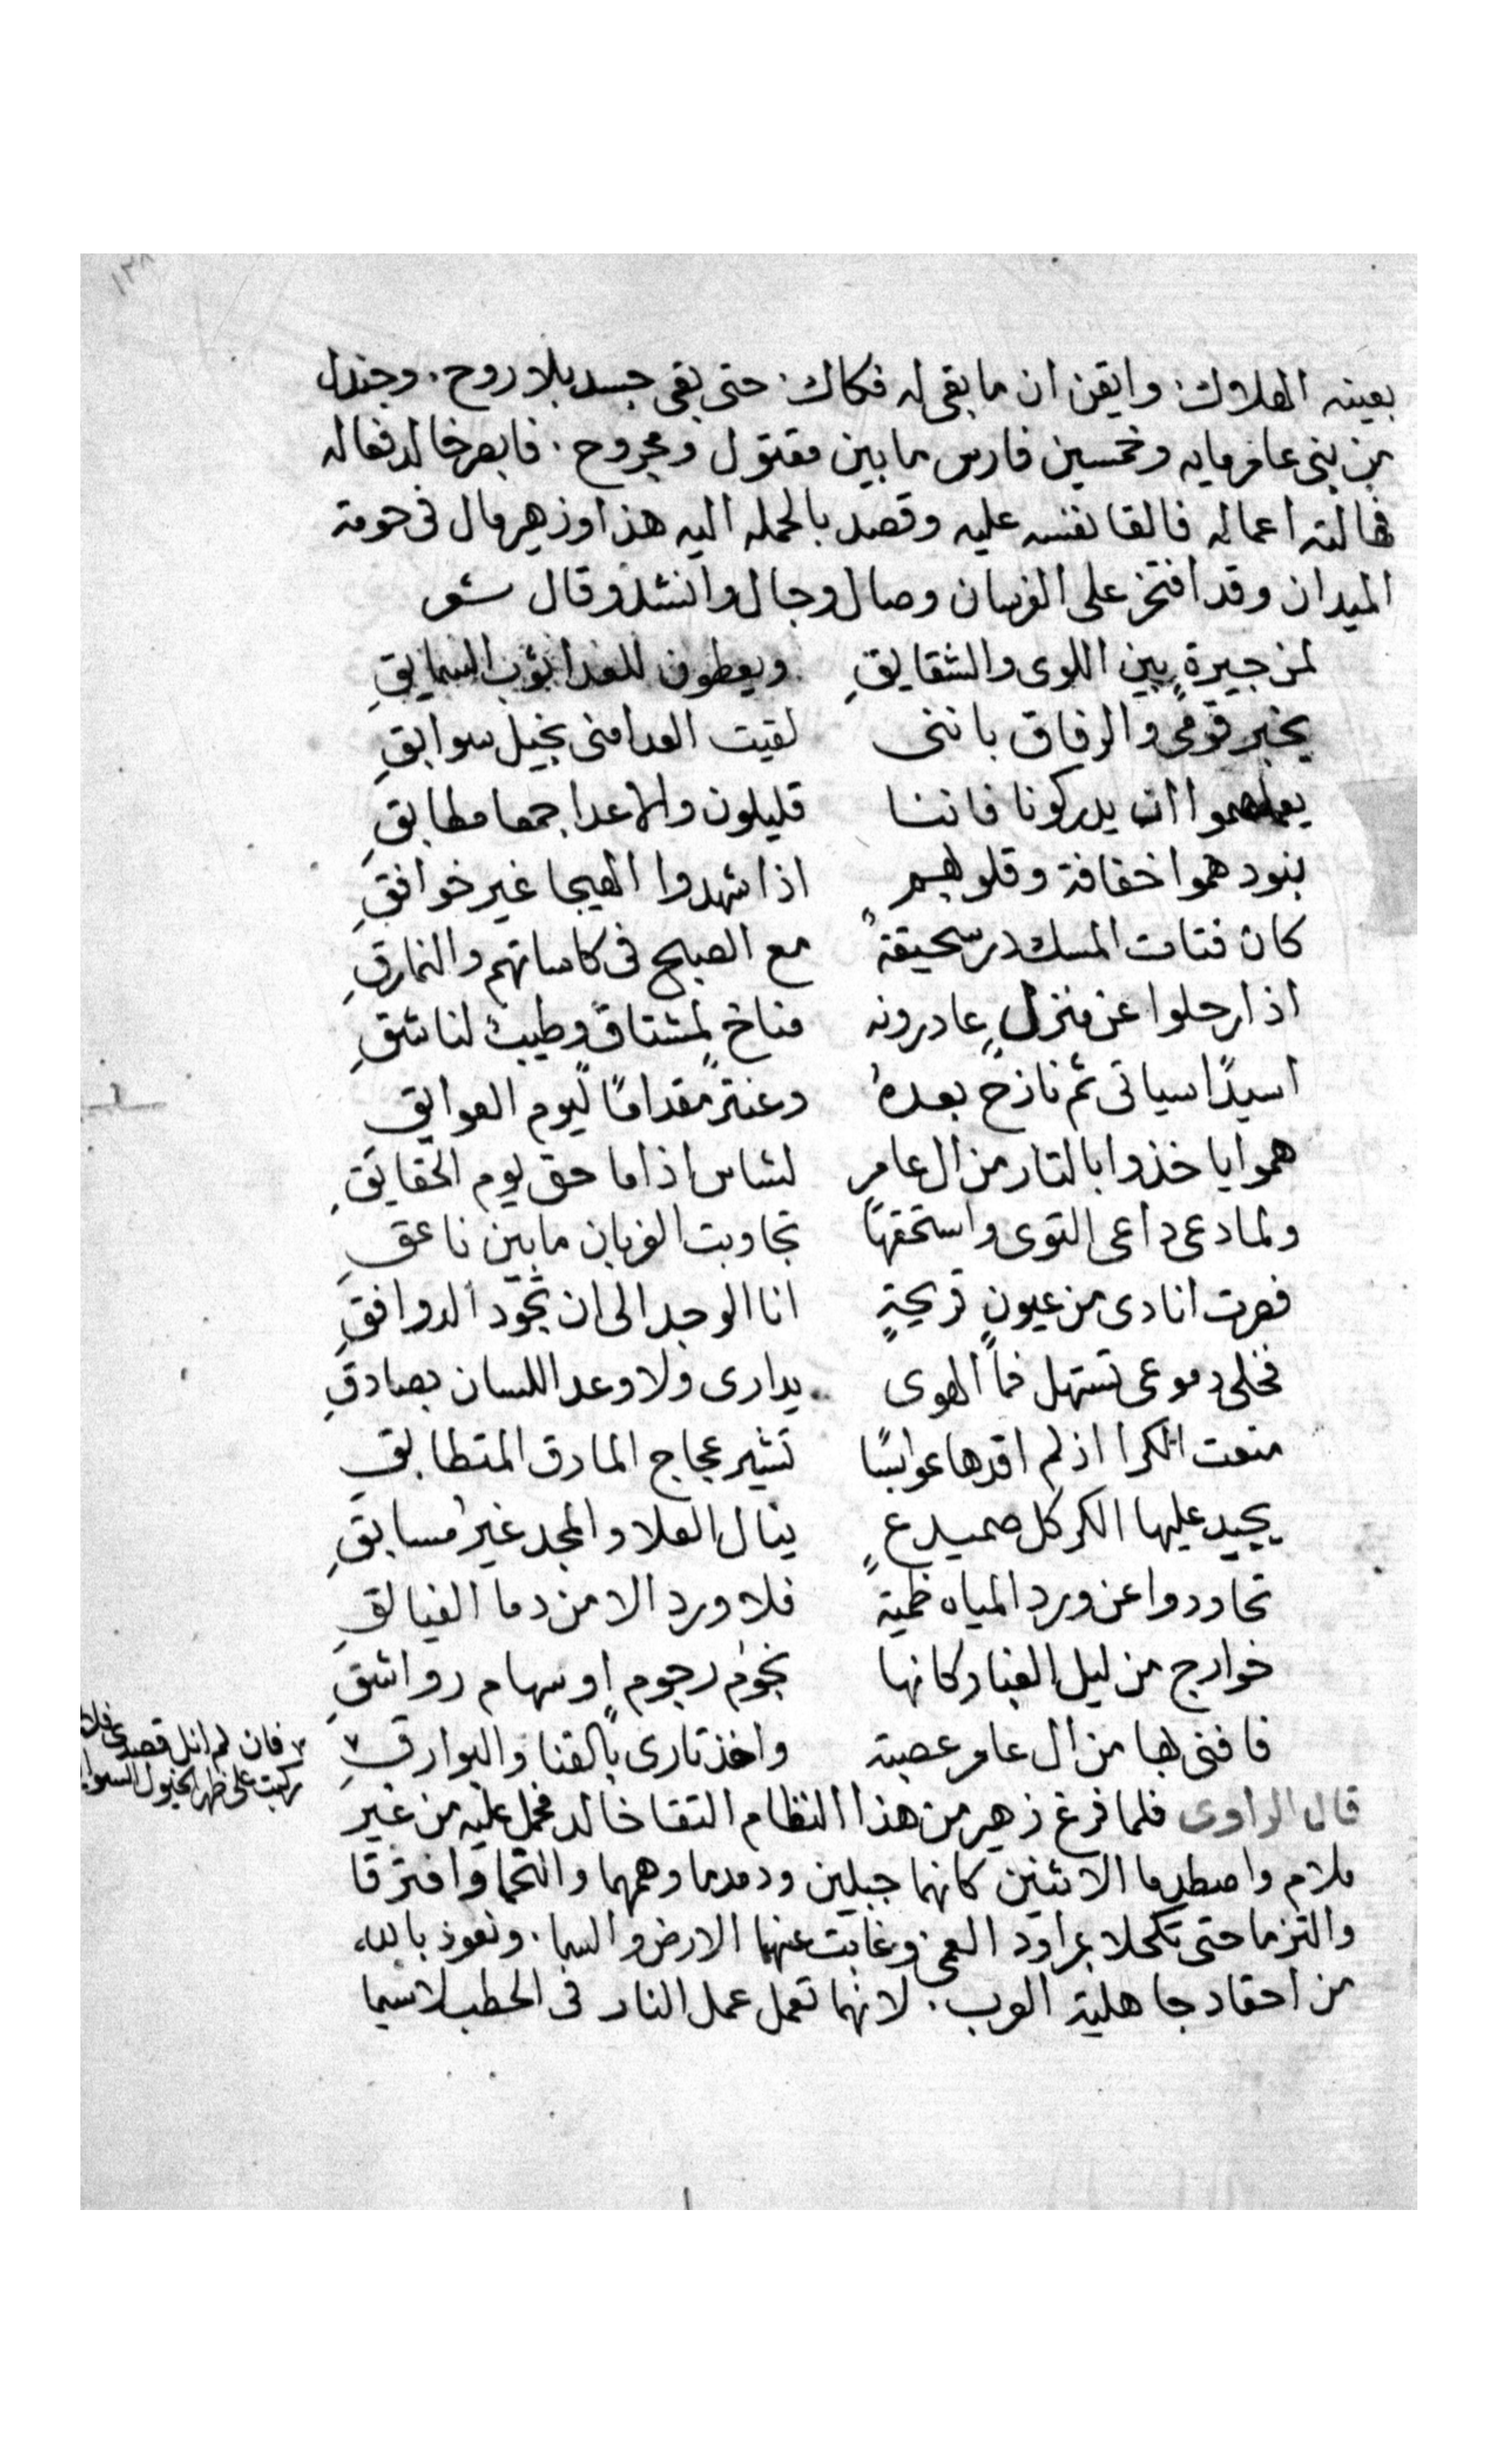 ١٣٨
بعينه الهلاك. وايقن ان ما بقى له فكاك. حتى بقى جسد بلا روح. وجندل
من بنى عامر مايه وخمسين فارس ما بين مقتول ومجروح. فابصر خالد فعاله
فهالته اعماله فالقا نفسه عليه وقصد بالحمله اليه هذا وزهير مال فى حومة
الميدان وقد افتخر على الفرسان وصال وجال وانشد وقال شعر
لمن جيرةٍ بين اللوى والشقايقِ ويعطون للغدا ثوب
يخبر قومى والرفاق باننى لقيت العدا منى بخيل سوابقِ
ان يدركونا فاننا قليلون والاعدا جمعا مطابقِ
بنود هموا خفاقة وقلوبهم اذا شهدوا الهيجا غير خوافقِ
كان فتات المسك در سحيقةً مع الصبح فى كاساتهم والنمارقِ
اذا رحلوا عن منزلٍ عادرونه مناخ لمشتاقٍ وطيب لناشقِ
اسيدًا سياتى ثم نازح بعده وعنترً مقدامًا ليوم العوايقِ
هموا ياخذوا بالتار من ال عامرٍ لشاس اذا ما حق يوم الحقايقِ
ولما دعى داعى التوى واستحقها تجاوبت الغربان ما بين ناعقِ
فصرت انادى من عيونٍ قريحةٍ انا الوجد الى ان تجود الدوافقِ
فخلى دموعى تستهل فما الهوى يدارى ولا وعد اللسان بصادقِ
منعت الكرا اذ لم اقدها عوابسًا تثير عجاج المارق المتطابقِ
يجيد عليها الكر كل صميدعٍ ينال العلا والمجد غير مسابقِ
تحاوردوا عن ورد المياه ظميةً فلا ورد الا من دما الفيالقِ
خوارج من ليل الغبار كانها نجوم رجومٍ او سهام رواشقِ
فافنى بها من ال عامر عصبة واخذ تارى بالقنا والبوارقِ ٧
٧ فان لم انل قصدى فلا
ركبت على ظهر الخيول السوا
قال الراوى فلما فرغ زهير من هذا النظام التقا خالد فحمل عليه من غير
ملام واصطدما الاثنين كانهما جبلين ودمدما وهمهما والتحما وافترقا
والتزما حتى تكحلا بمراود العمى وغابت عنهما الارض والسما. ونعوذ بالله
من احقاد جاهلية العرب. لانها تعمل عمل النار فى الحطب لاسيما